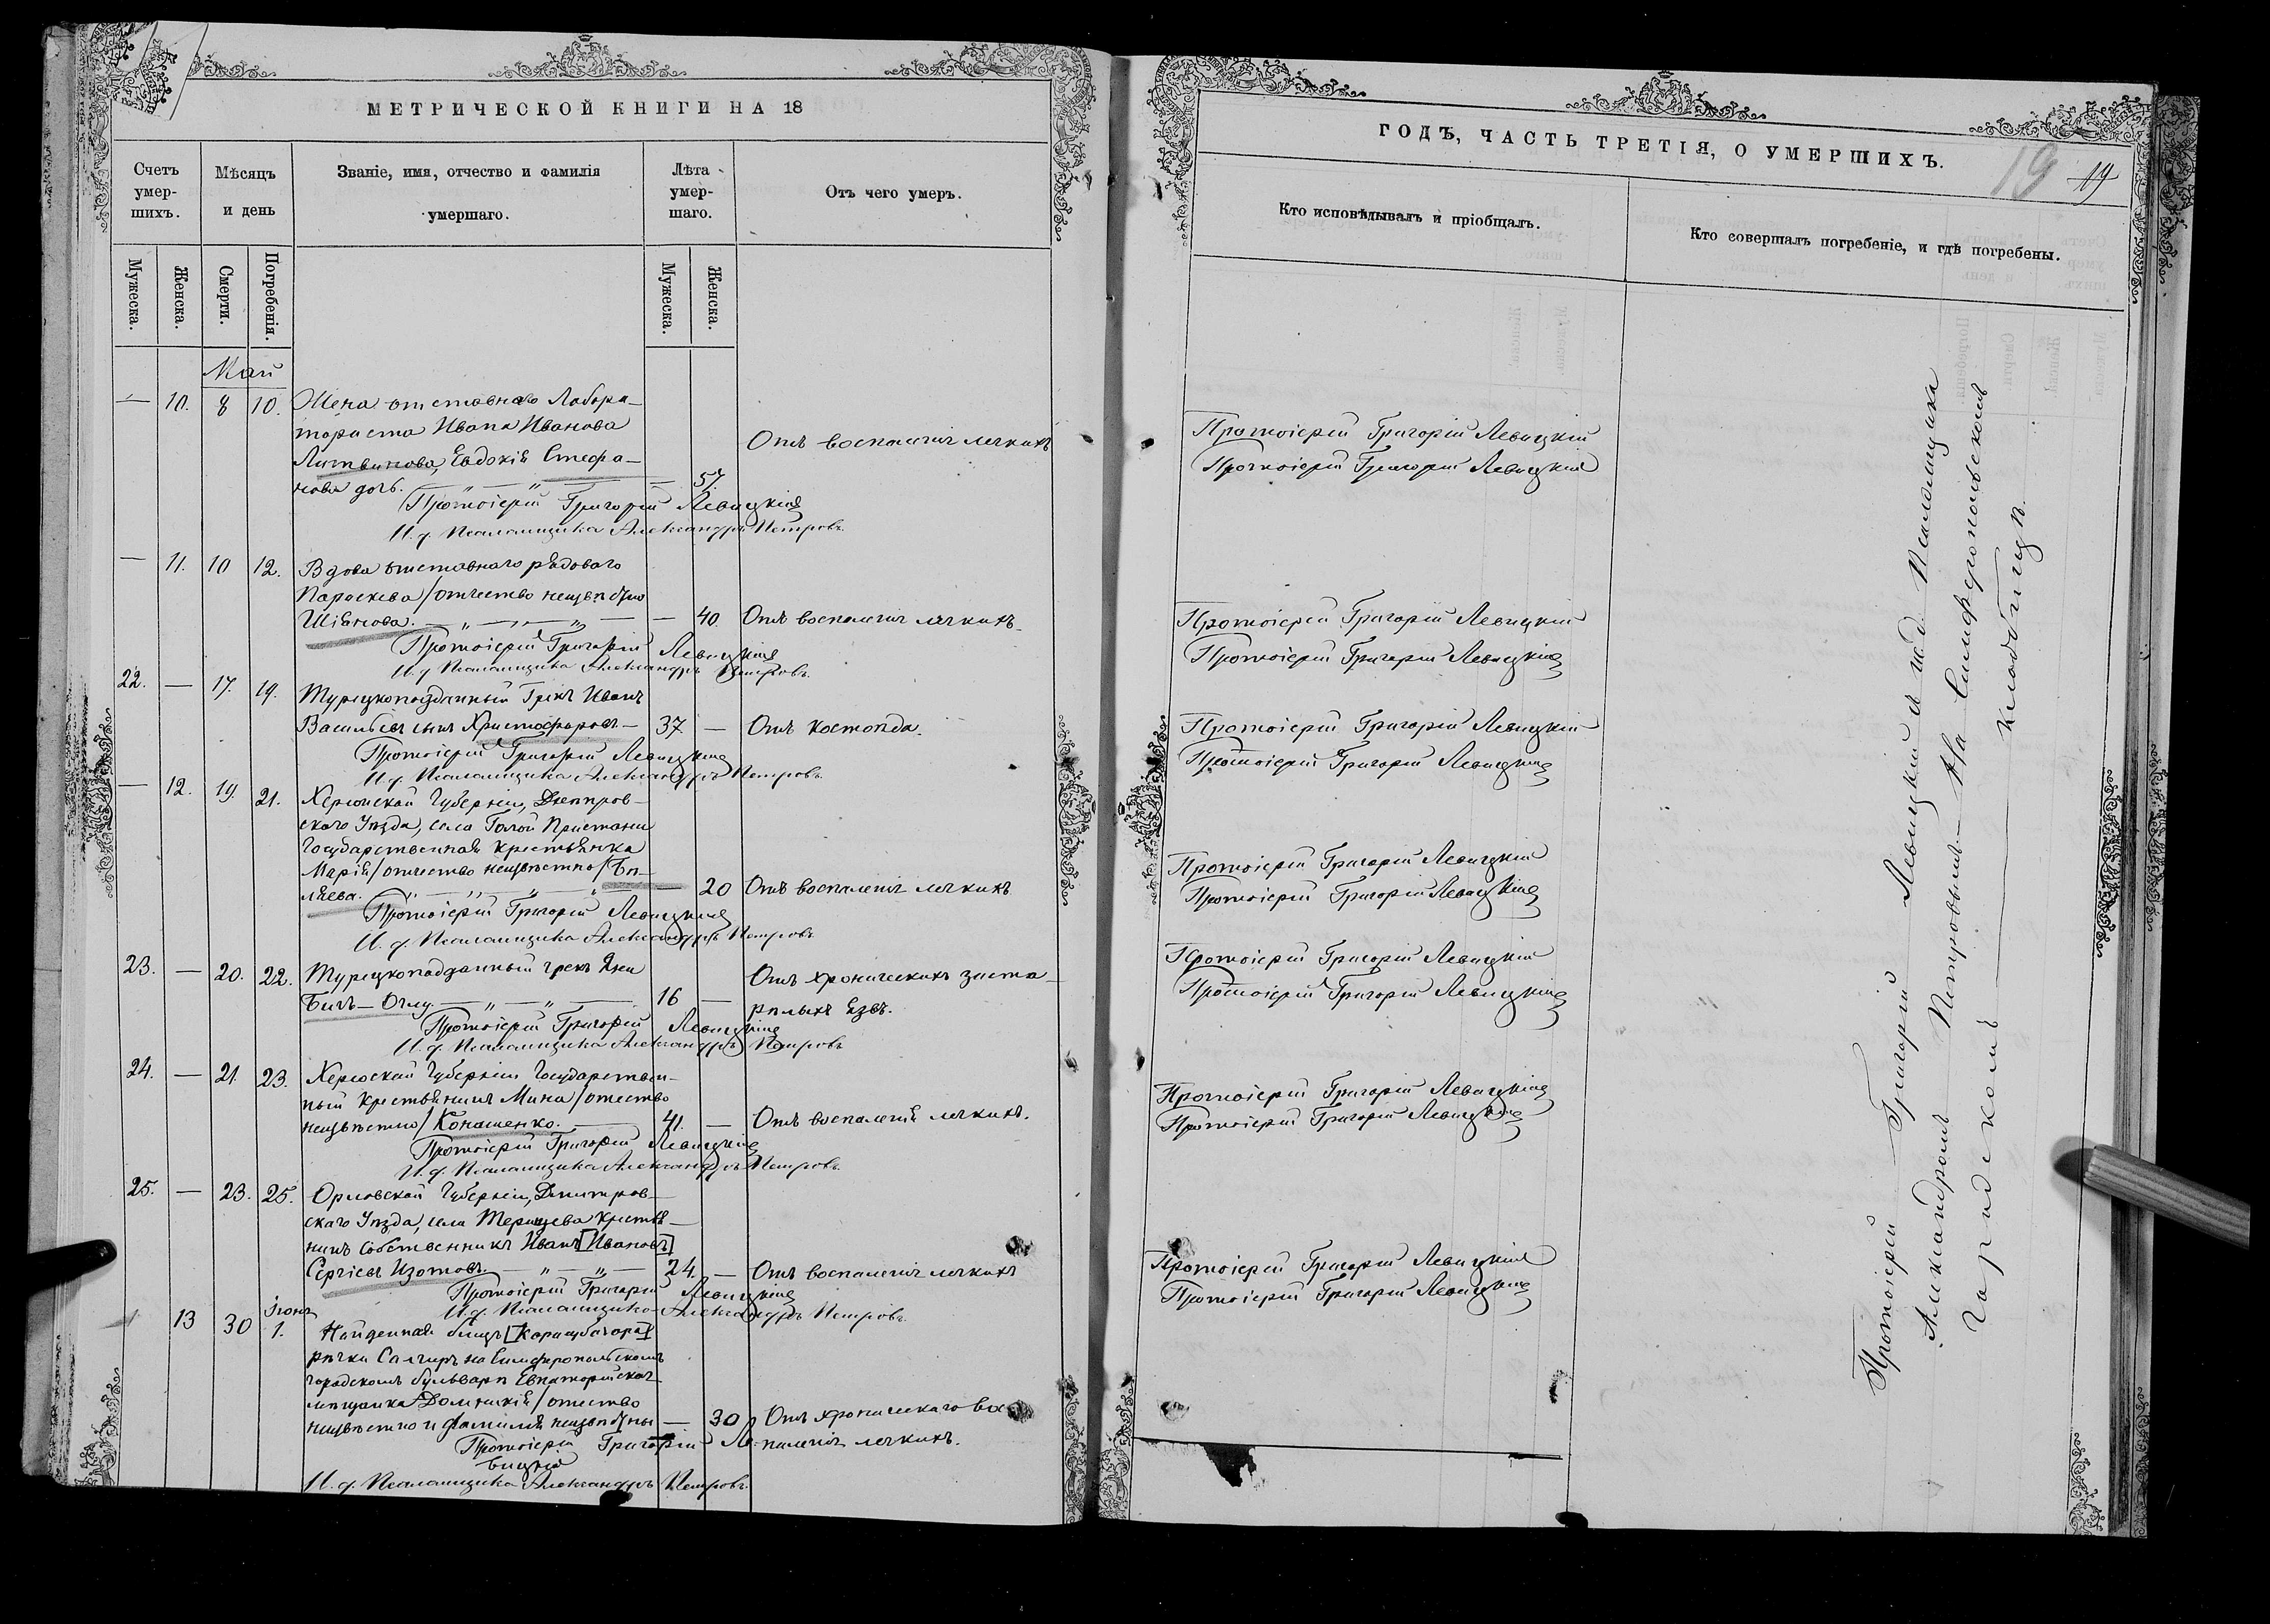 МЕТРИЧЕСКОЙ КНИГИ НА 18
Счетъ умер-шихъ.
Мѣсяцъ и день
Званіе, имя, отчество и фамилія умершаго.
Лѣта умер-шаго.
Отъ чего умеръ.
Мужеска.
Женска.
Смерти.
Погребенія.
Мужеска.
Женска.
Май
— 10. 8 10. Жена отставнаго Лабора-
ториста Ивана Иванова
Литвинова, Евдокія Стефа-
нова дочь. — 57. Отъ воспаленія легкихъ
Протоіерей Григорій Левицкій
И. д. Псаломщика Александръ Петровъ
— 11. 10 12. Вдова отставнаго рядоваго
Параскева /отчество неизвѣстно
— 40. Отъ воспаленія легкихъ
Протоіерей Григорій Левицкій
И. д. Псаломщика Александръ Петровъ
22. — 17. 19. Турецкоподданный Грекъ Иванъ
Васильевъ сынъ Христофоровъ — 37 — Отъ костоѣда.
Протоіерей Григорій Левицкій
И. д. Псаломщика Александръ Петровъ
— 12. 19. 21. Херсонской Губерніи, Днѣпров-
скаго Уѣзда, села Голой Пристани
Государственная крестьянка
Марія /отчество неизвѣстно/ Бѣ-
ляева. 20 Отъ воспаленія легкихъ
Протоіерей Григорій Левицкій
И. д. Псаломщика Александръ Петровъ
23. — 20. 22. Турецкоподданный грекъ Яни
16 — Отъ хроническихъ заста-
рѣлыхъ язвъ.
Протоіерей Григорій Левицкій
И. д. Псаломщика Александръ Петровъ
24. — 21. 23. Херсоской Губерніи Государствен-
ный крестьянинъ Мина /отество
неизвѣстно/ Конашенко. 41. — Отъ воспаленія легкихъ.
Протоіерей Григорій Левицкій
И. д. Псаломщика Александръ Петровъ
25. — 23. 25. Орловской Губерніи, Дмитров-
скаго Уѣзда, села крестья-
нинъ собственникъ Иванъ [Ивановъ]
Сергіевъ Изотовъ. 24. — Отъ воспаленія легкихъ
Протоіерей Григорій Левицкій
И. д. Псаломщика Александръ Петровъ
13 30 Іюня 1. Найденная близъ
рѣчки Салгиръ на Симферопольскомъ
городскомъ бульварѣ Евпаторійская
мѣщанка Домникія /отество
неизвѣстно и фамилія — 30 Отъ хроническаго вос
паленія легкихъ.
Протоіерей Григорій Ле-
вицкій
И. д. Псаломщика Александръ Петровъ
ГОДЪ, ЧАСТЬ ТРЕТІЯ, О УМЕРШИХЪ.
19 19
Кто исповѣдывалъ и пріобщалъ.
Кто совершалъ погребеніе, и гдѣ погребены.
Протоіерей Григорій Левицкій
Протоіерей Григорій Левицкій
Протоіерей Григорій Левицкій
Протоіерей Григорій Левицкій
Протоіерей Григорій Левицкій
Протоіерей Григорій Левицкій
Протоіерей Григорій Левицкій
Протоіерей Григорій Левицкій
Протоіерей Григорій Левицкій
Протоіерей Григорій Левицкій
Протоіерей Григорій Левицкій
Протоіерей Григорій Левицкій
Протоіерей Григорій Левицкій
Протоіерей Григорій Левицкій
Протоіерей Григорій Левицкій и и. д. Псаломщика
Александромъ Петровымъ — На Симферопольскомъ
Городскомъ — кладбищѣ.